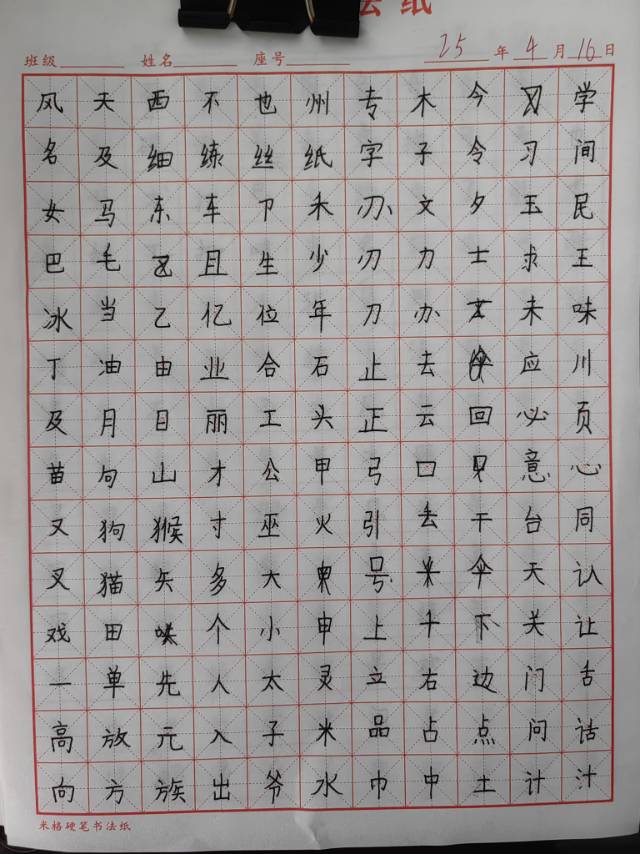 法纸
班级 姓名 座号 25年4月16日
风天西不也州专木今习学
名及细练丝纸字子令习间
女马东车卫禾刃文夕玉民
巴毛且生少刃力士求王
冰当乙亿位年刀办未味
丁油由业合石止去应川
及月日丽工头正云回必页
苗句山才公甲弓口见意心
又狗猴寸巫火引去干台同
叉猫矢多大号伞天认
戏田个小申上千下关让
一单先人太灵立右边门舌
高放元入子米品占点问话
向方族出爷水巾中土计汁
米格硬笔书法纸